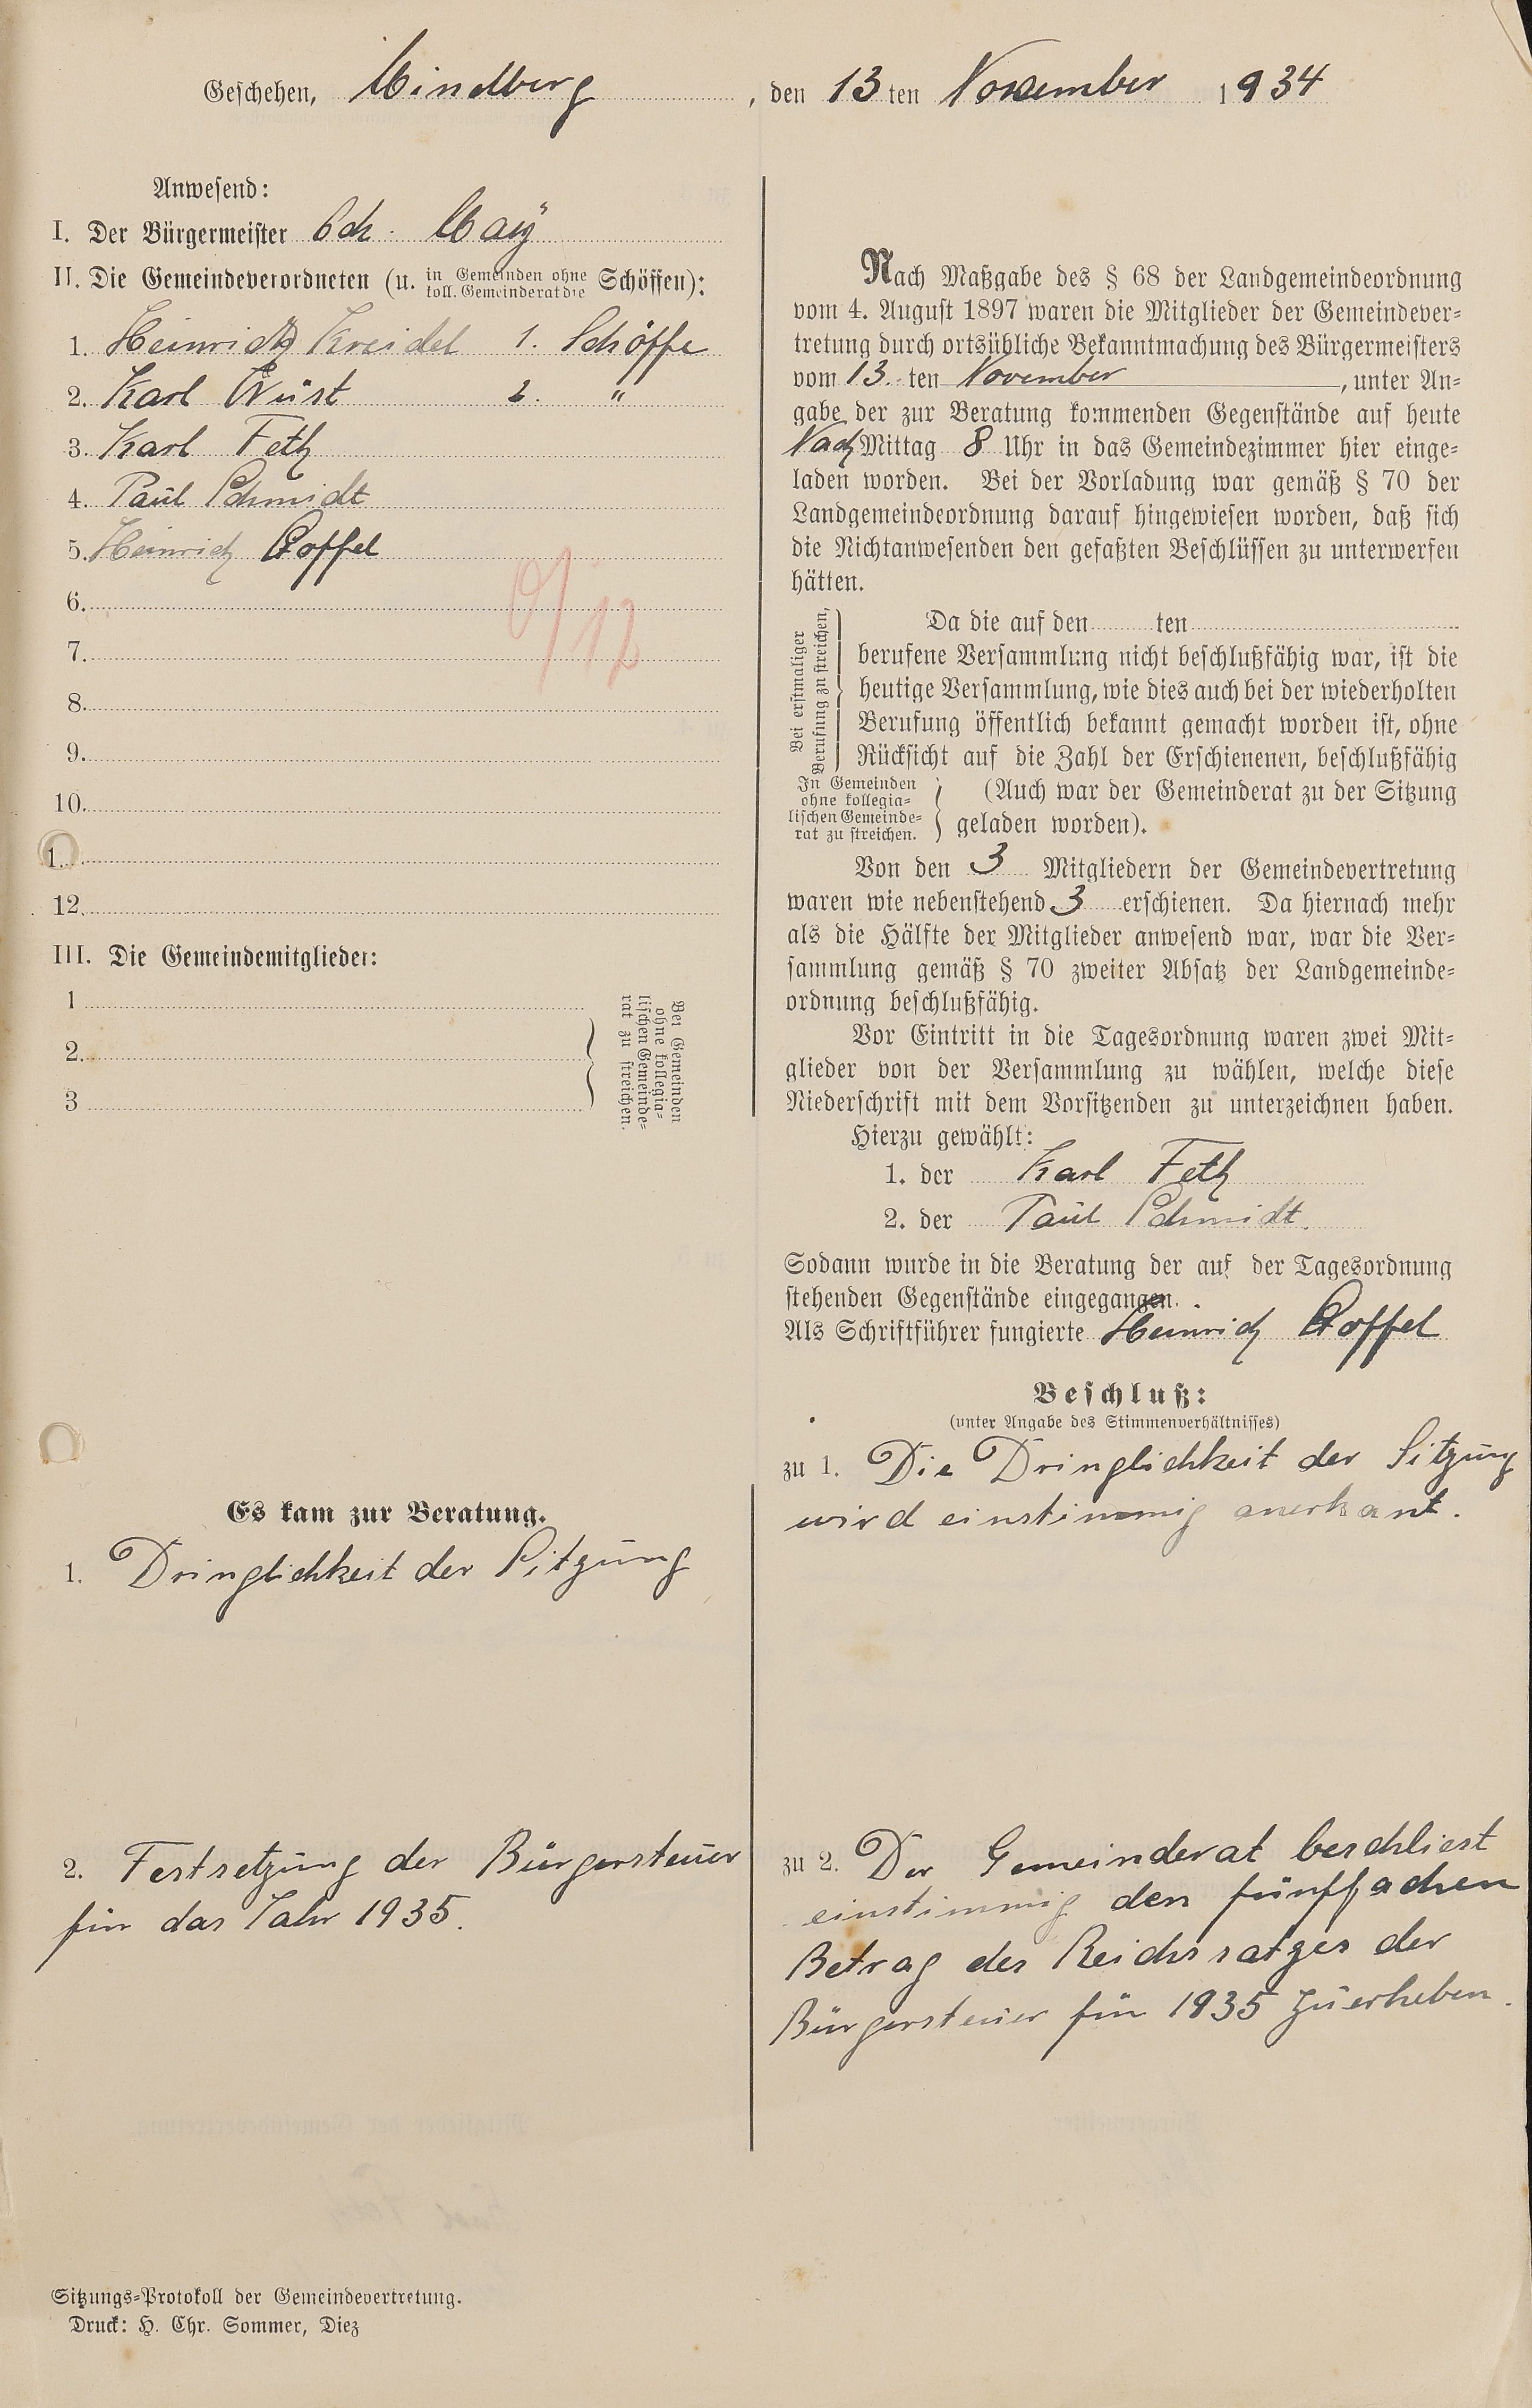 Geschehen, Mindberg, den 13 ten November 1934
Anwesend:
I. Der Bürgermeister May
II. Die Gemeindeverordneten (u. in Gemeinden ohne koll. Gemeinderat die Schöffen):
1. Heinrich Kreidel 1. Schöffe
2. Karl Wüst 2. "
3. Karl Feth
4. Paul Schmidt
5. Heinrich Goffel
6.
7.
8.
9.
10.
1.
12.
III. Die Gemeindemitglieder:
1
2.
3
Bei Gemeinden
ohne kollegia-
lischen Gemeinde-
rat zu streichen.
Es kam zur Beratung.
1. Dringlichkeit der Sitzung
2. Festsetzung der Bürgersteuer
für das Jahr 1935.
Sitzungs-Protokoll der Gemeindevertretung.
Druck: H. Chr. Sommer, Diez
Nach Maßgabe des § 68 der Landgemeindeordnung
vom 4. August 1897 waren die Mitglieder der Gemeindever-
tretung durch ortsübliche Bekanntmachung des Bürgermeisters
vom 13. ten November, unter An-
gabe der zur Beratung kommenden Gegenstände auf heute
Nach Mittag 8 Uhr in das Gemeindezimmer hier einge-
laden worden. Bei der Vorladung war gemäß § 70 der
Landgemeindeordnung darauf hingewiesen worden, daß sich
die Nichtanwesenden den gefaßten Beschlüssen zu unterwerfen
hätten.
Bei erstmaliger
Berufung zu streichen,
Da die auf den ten
berufene Versammlung nicht beschlußfähig war, ist die
heutige Versammlung, wie dies auch bei der wiederholten
Berufung öffentlich bekannt gemacht worden ist, ohne
Rücksicht auf die Zahl der Erschienenen, beschlußfähig
In Gemeinden
ohne kollegia-
lischen Gemeinde-
rat zu streichen.
(Auch war der Gemeinderat zu der Sitzung
geladen worden).
Von den 3 Mitgliedern der Gemeindevertretung
waren wie nebenstehend 3 erschienen. Da hiernach mehr
als die Hälfte der Mitglieder anwesend war, war die Ver-
sammlung gemäß § 70 zweiter Absatz der Landgemeinde-
ordnung beschlußfähig.
Vor Eintritt in die Tagesordnung waren zwei Mit-
glieder von der Versammlung zu wählen, welche diese
Niederschrift mit dem Vorsitzenden zu unterzeichnen haben.
Hierzu gewählt:
1. der Karl Feth
2. der Paul Schmidt.
Sodann wurde in die Beratung der auf der Tagesordnung
stehenden Gegenstände eingegangen.
Als Schriftführer fungierte Heinrich Goffel
Beschluß:
(unter Angabe des Stimmenverhältnisses)
zu 1. Die Dringlichkeit der Sitzung
wird einstimmig anerkant.
zu 2. Der Gemeinderat beschliest
einstimmig den fünffachen
Betrag des Reichssatzes der
Bürgersteuer für 1935 zu erheben.